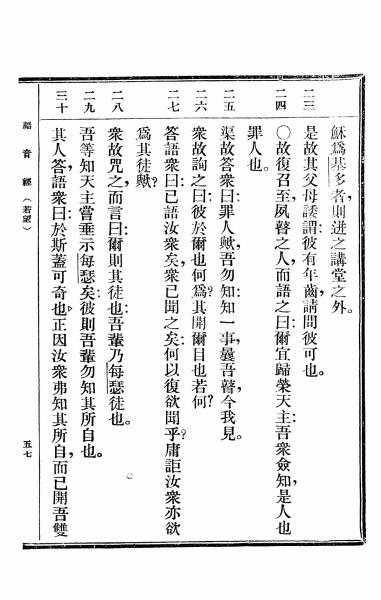 穌爲基多者則迸之講堂之外。
二三
是故其父母諉謂彼有年齒請問彼可也。
二四
〇故復召至夙瞽之人而語之曰爾宜歸榮天主吾衆僉知是人也
罪人也。
二五
渠故答衆曰罪人歟吾勿知知一事曩吾瞽今我見。
二六
衆故詢之曰彼於爾也何爲?其開爾目也若何?
二七
答語衆曰已語汝衆矣衆已聞之矣何以復欲聞乎?庸詎汝衆亦欲
爲其徒歟?
二八
衆故咒之而言曰爾則其徒也吾輩乃每瑟徒也。
二九
吾等知天主嘗垂示每瑟矣彼則吾輩勿知其所自也。
三十
其人答語衆曰於斯蓋可奇也正因汝衆弗知其所自而已開吾雙
福音經(若望)
五七